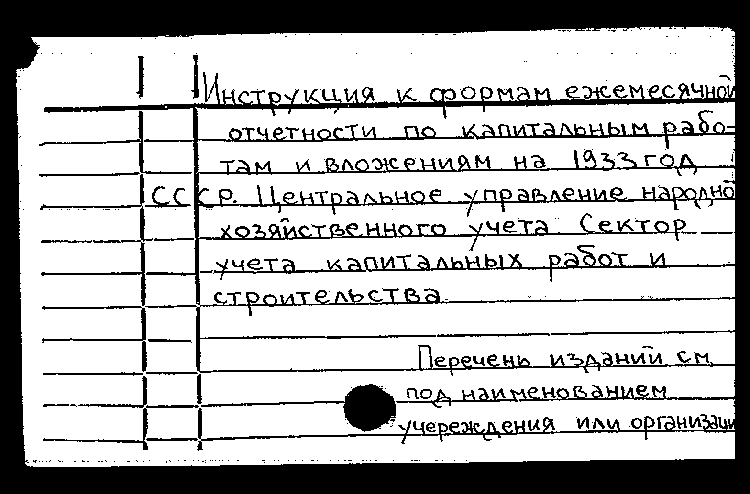 Инструкция к формам ежемесячной
отчетности по капитальным рабо-
там и вложениям на 1933 год
СССР. Центральное управление народно
хозяйственного учета Сектор
учета капитальных работ и
строительства
Перечень изданий см
под наименованием
учереждения или организаци